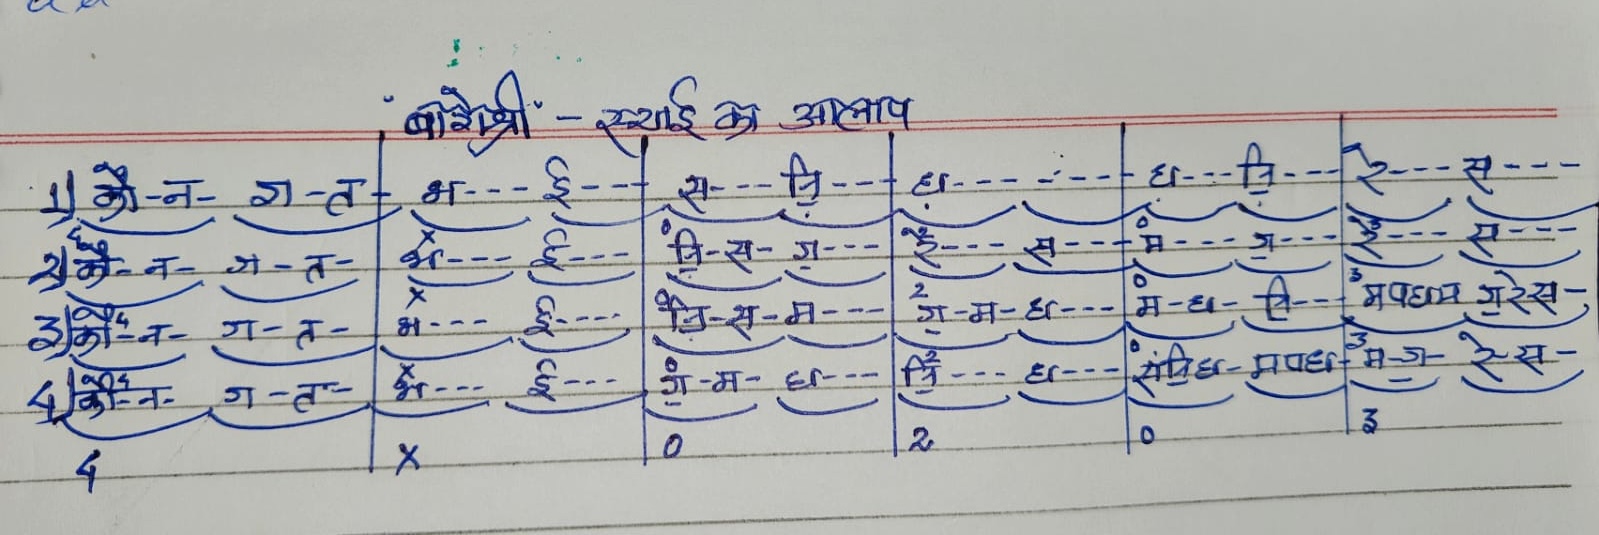 "बागेश्री" - स्थाई का आलाप
1) कौ-न- ग-त- भ--- ई--- स--- नि़॒--- ध़--- ---- ध़--- नि़॒--- रे--- स---
2) कौ-न- ग-त- भ--- ई--- नि़॒-स- ग॒--- रे--- स--- म--- ग॒--- रे--- स---
3) कौ-न- ग-त- भ--- ई---- नि़॒-स-म--- ग॒-म-ध--- म-ध- नि॒--- मपधम ग॒रेस-
4) कौ-न- ग-त- भ--- ई--- ग॒-म- ध--- नि॒--- ध--- संनि॒ध- मपध- म-ग॒- रे-स-
4 x 0 2 0 3